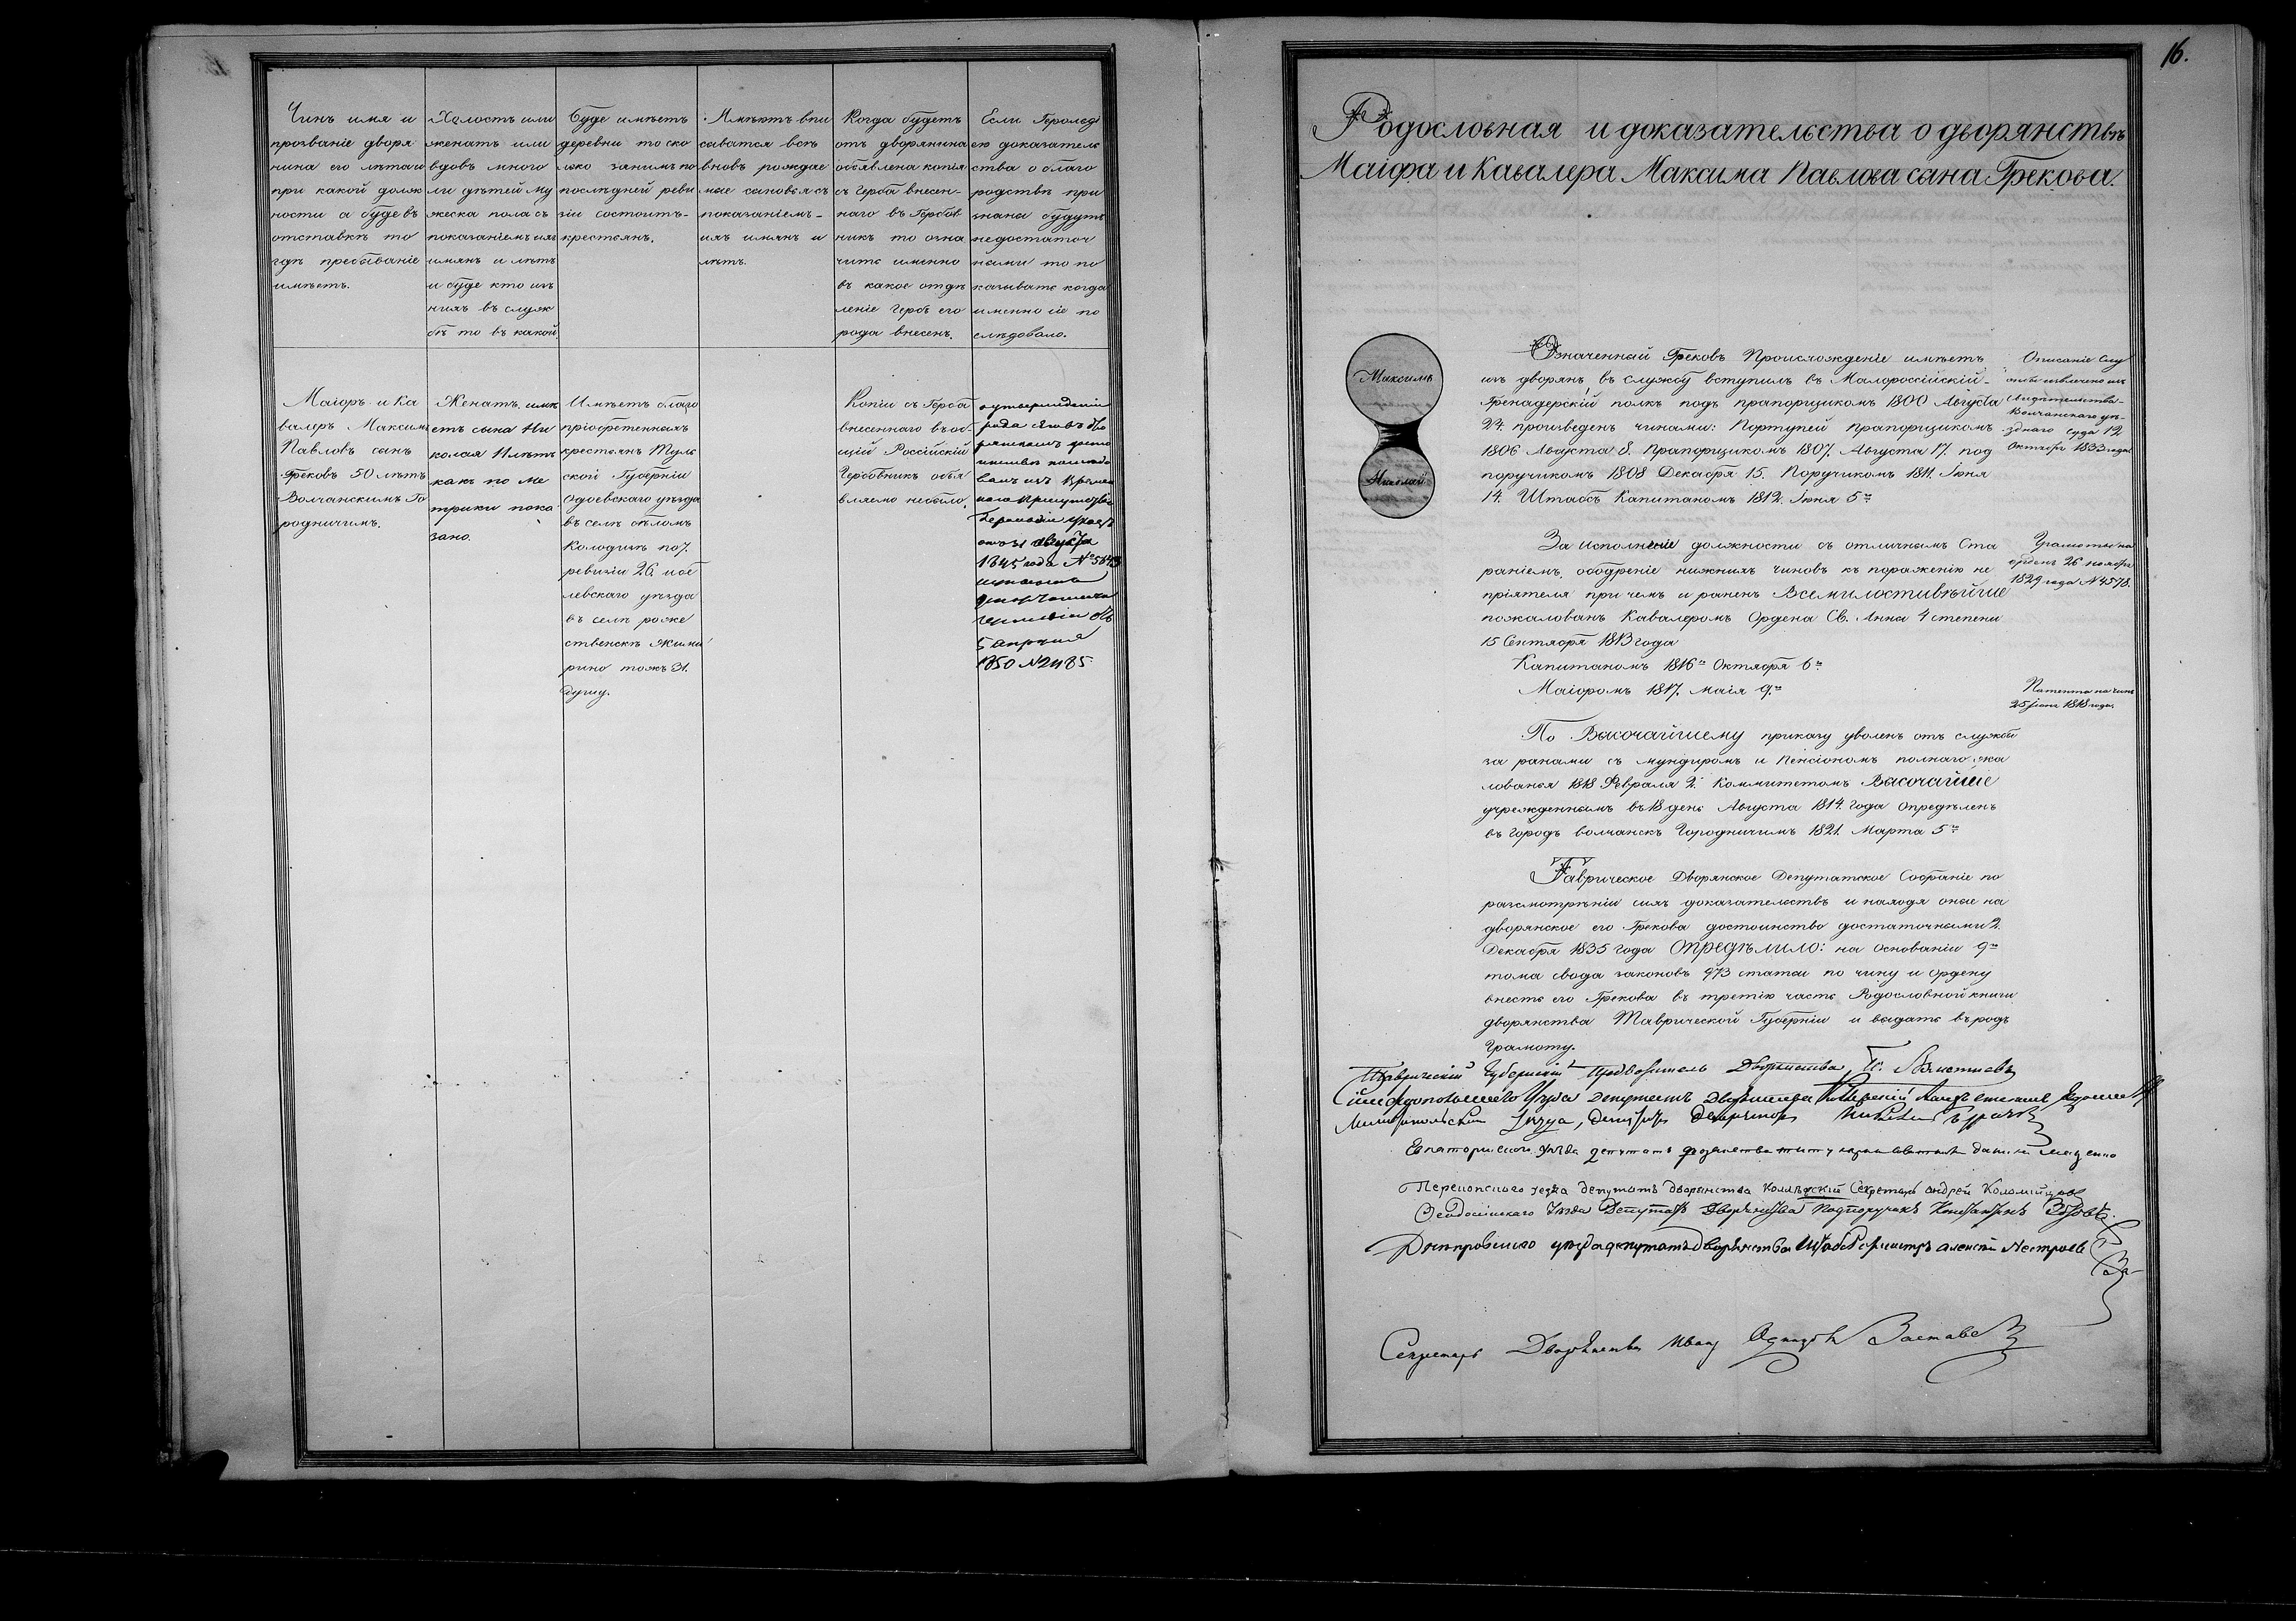 Чинъ имя и
прозваніе дворя
нина его лѣта и
при какой долж
ности а буде въ
отставкѣ то
гдѣ пребываніе
имѣетъ.
Холостъ или
женатъ или
вдовъ много
ли дѣтей му
жеска пола съ
показаніемъ ихъ
имянъ и лѣтъ
и буде кто изъ
нихъ въ служ
бѣ то въ какой.
Буде имѣетъ
деревни то ско
лько занимъ по
послѣдней реви
зіи состоитъ
крестьянъ.
Имѣютъ впи
сыватся всѣ
вновь рождае
мые сыновья съ
показаніемъ
ихъ имянъ и
лѣтъ.
Когда будетъ
отъ дворянина
объявлена копія
съ Герба внесен-
наго въ Гербов
никъ то озна
чить именно
въ какое отдѣ
леніе Гербъ его
рода внесенъ.
Если Герольді
ею доказатель
ства о благо
родствѣ при
знаны будутъ
недостаточ
ными то по
казывать когда
именно іе по
слѣдовало.
Маіоръ и Ка
валеръ Максимъ
Павловъ сынъ
Грековъ 50 лѣтъ
Волчанскимъ Го
родничимъ.
Женатъ имѣ
етъ сына Ни
колая 11 лѣтъ
какъ по Ме
трики пока
зано.
Имѣетъ благо
пріобретенныхъ
крестьянъ Туль
ской Губерніи
Одоевскаго уѣзда
въ селѣ бѣломъ
Колодизѣ по 7.
ревизіи 26. и
левскаго уѣзда
въ селѣ роже
ственскѣ
рино тожъ 31.
душу.
Копіи съ Герба
внесеннаго въ об-
щій Россійскій
Гербовникъ объя
вляемо небыло.
о утвержденіи
рода сего въ дво
рянскомъ досто
инствѣ
Герольдіи Указъ
отъ 31 августа
1845 года №
Герольдіи отъ
5 апрѣля
1850 № 2485.
16.
Родословная и доказательства о дворянствѣ
Маіора и Кавалера Максима Павлова сына Грекова.
Максимъ
Николай
Означенный Грековъ Происхожденіе имѣетъ
изъ дворянъ, въ службу вступилъ въ Малороссійскій-
Гренадерскій полкъ подъ прапорщикомъ 1800 Августа
24. произведенъ чинами: Портупей прапорщикомъ
1806 Августа 8. Прапорщикомъ 1807. Августа 17. под
поручикомъ 1808 Декабря 15. Поручикомъ 1811. Іюня
14. Штабсъ Капитаномъ 1812. Іюня 5го
Описаніе слу
жбы извлечено изъ
Свидѣтельства
Волчанскаго уѣ-
зднаго суда 12
октября 1833 года
За исполненіе должности съ отличнымъ Ста
раніемъ, ободреніе нижнихъ чиновъ къ пораженію не
пріятеля при чемъ и раненъ Всемилостивѣйше
пожалованъ Кавалеромъ Ордена Св. Анны 4 степени
15 Сентября 1813 года
Капитаномъ 1816го Октября 6го
Маіоромъ 1817. маія 9.го
Грамоты на
орденъ 26 ноября
1829 года № 4578.
Патента на чинъ
25 1818 года.
По Высочайшему приказу уволенъ отъ службы
за ранами съ мундиромъ и Пенсіономъ полнаго жа
лованья 1818 Февраля 2. Коммитетомъ Высочайше
учрежденнымъ въ 18 день Августа 1814. года опредѣленъ
въ городъ Волчанскъ Городничимъ 1821. Марта 5го
Таврическое Дворянское Депутатское Собраніе по
разсмотрѣніи сихъ доказательствъ и находя оные на
дворянское его Грекова достоинство достаточными 2.
Декабря 1835 года Опредѣлило: на основаніи 9го
тома свода законовъ 973 статьи по чину и ордену
внесть его Грекова въ третію часть Родословной книги
дворянства Таврической Губерніи и выдать въ родъ
Грамоту.
Таврическій Губернскій Предводитель Дворянства
Симферопольскаго Уѣзда депутатъ дворянства
Мелитопольскаго Уѣзда, депутатъ
Евпаторискаго уѣзда депутатъ дворянства
Перекопскаго уезда депутатъ дворянства Коллежскій Секретарь андрей
Феодосійскаго Уѣзда Депутатъ Дворянства Подпоручикъ Константинъ
Днѣпровскаго уѣзда депутатъ дворянства Штабсъ
Секретарь Дворянства Иванъ